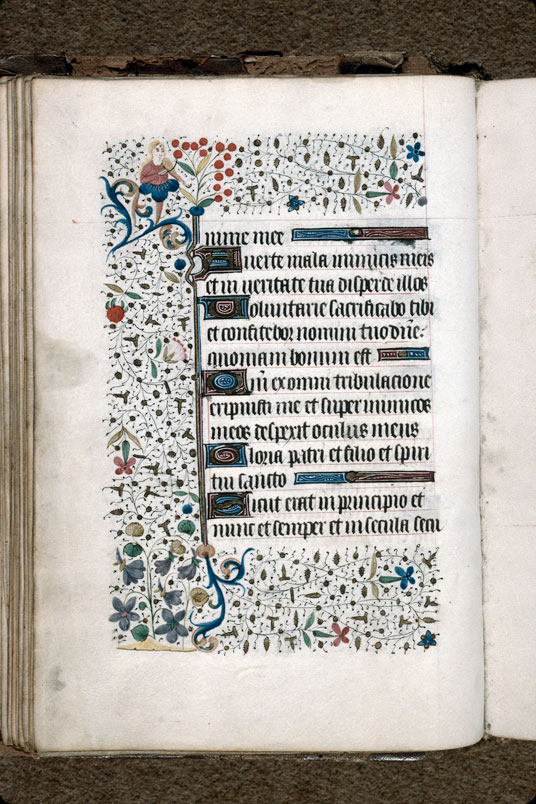 nime mee
Auerte mala inimicis meis
et in ueritate tua disperde illos
Voluntarie sacrificabo tibi
et confitebor nomini tuo dne
quoniam bonum est
Qm ex omni tribulacione
eripuisti me et super inimicos
meos despexit oculus meus
Gloria patri et filio et spiri
tui sancto
Sicut erat in principio et
nunc et semper et in secula secu